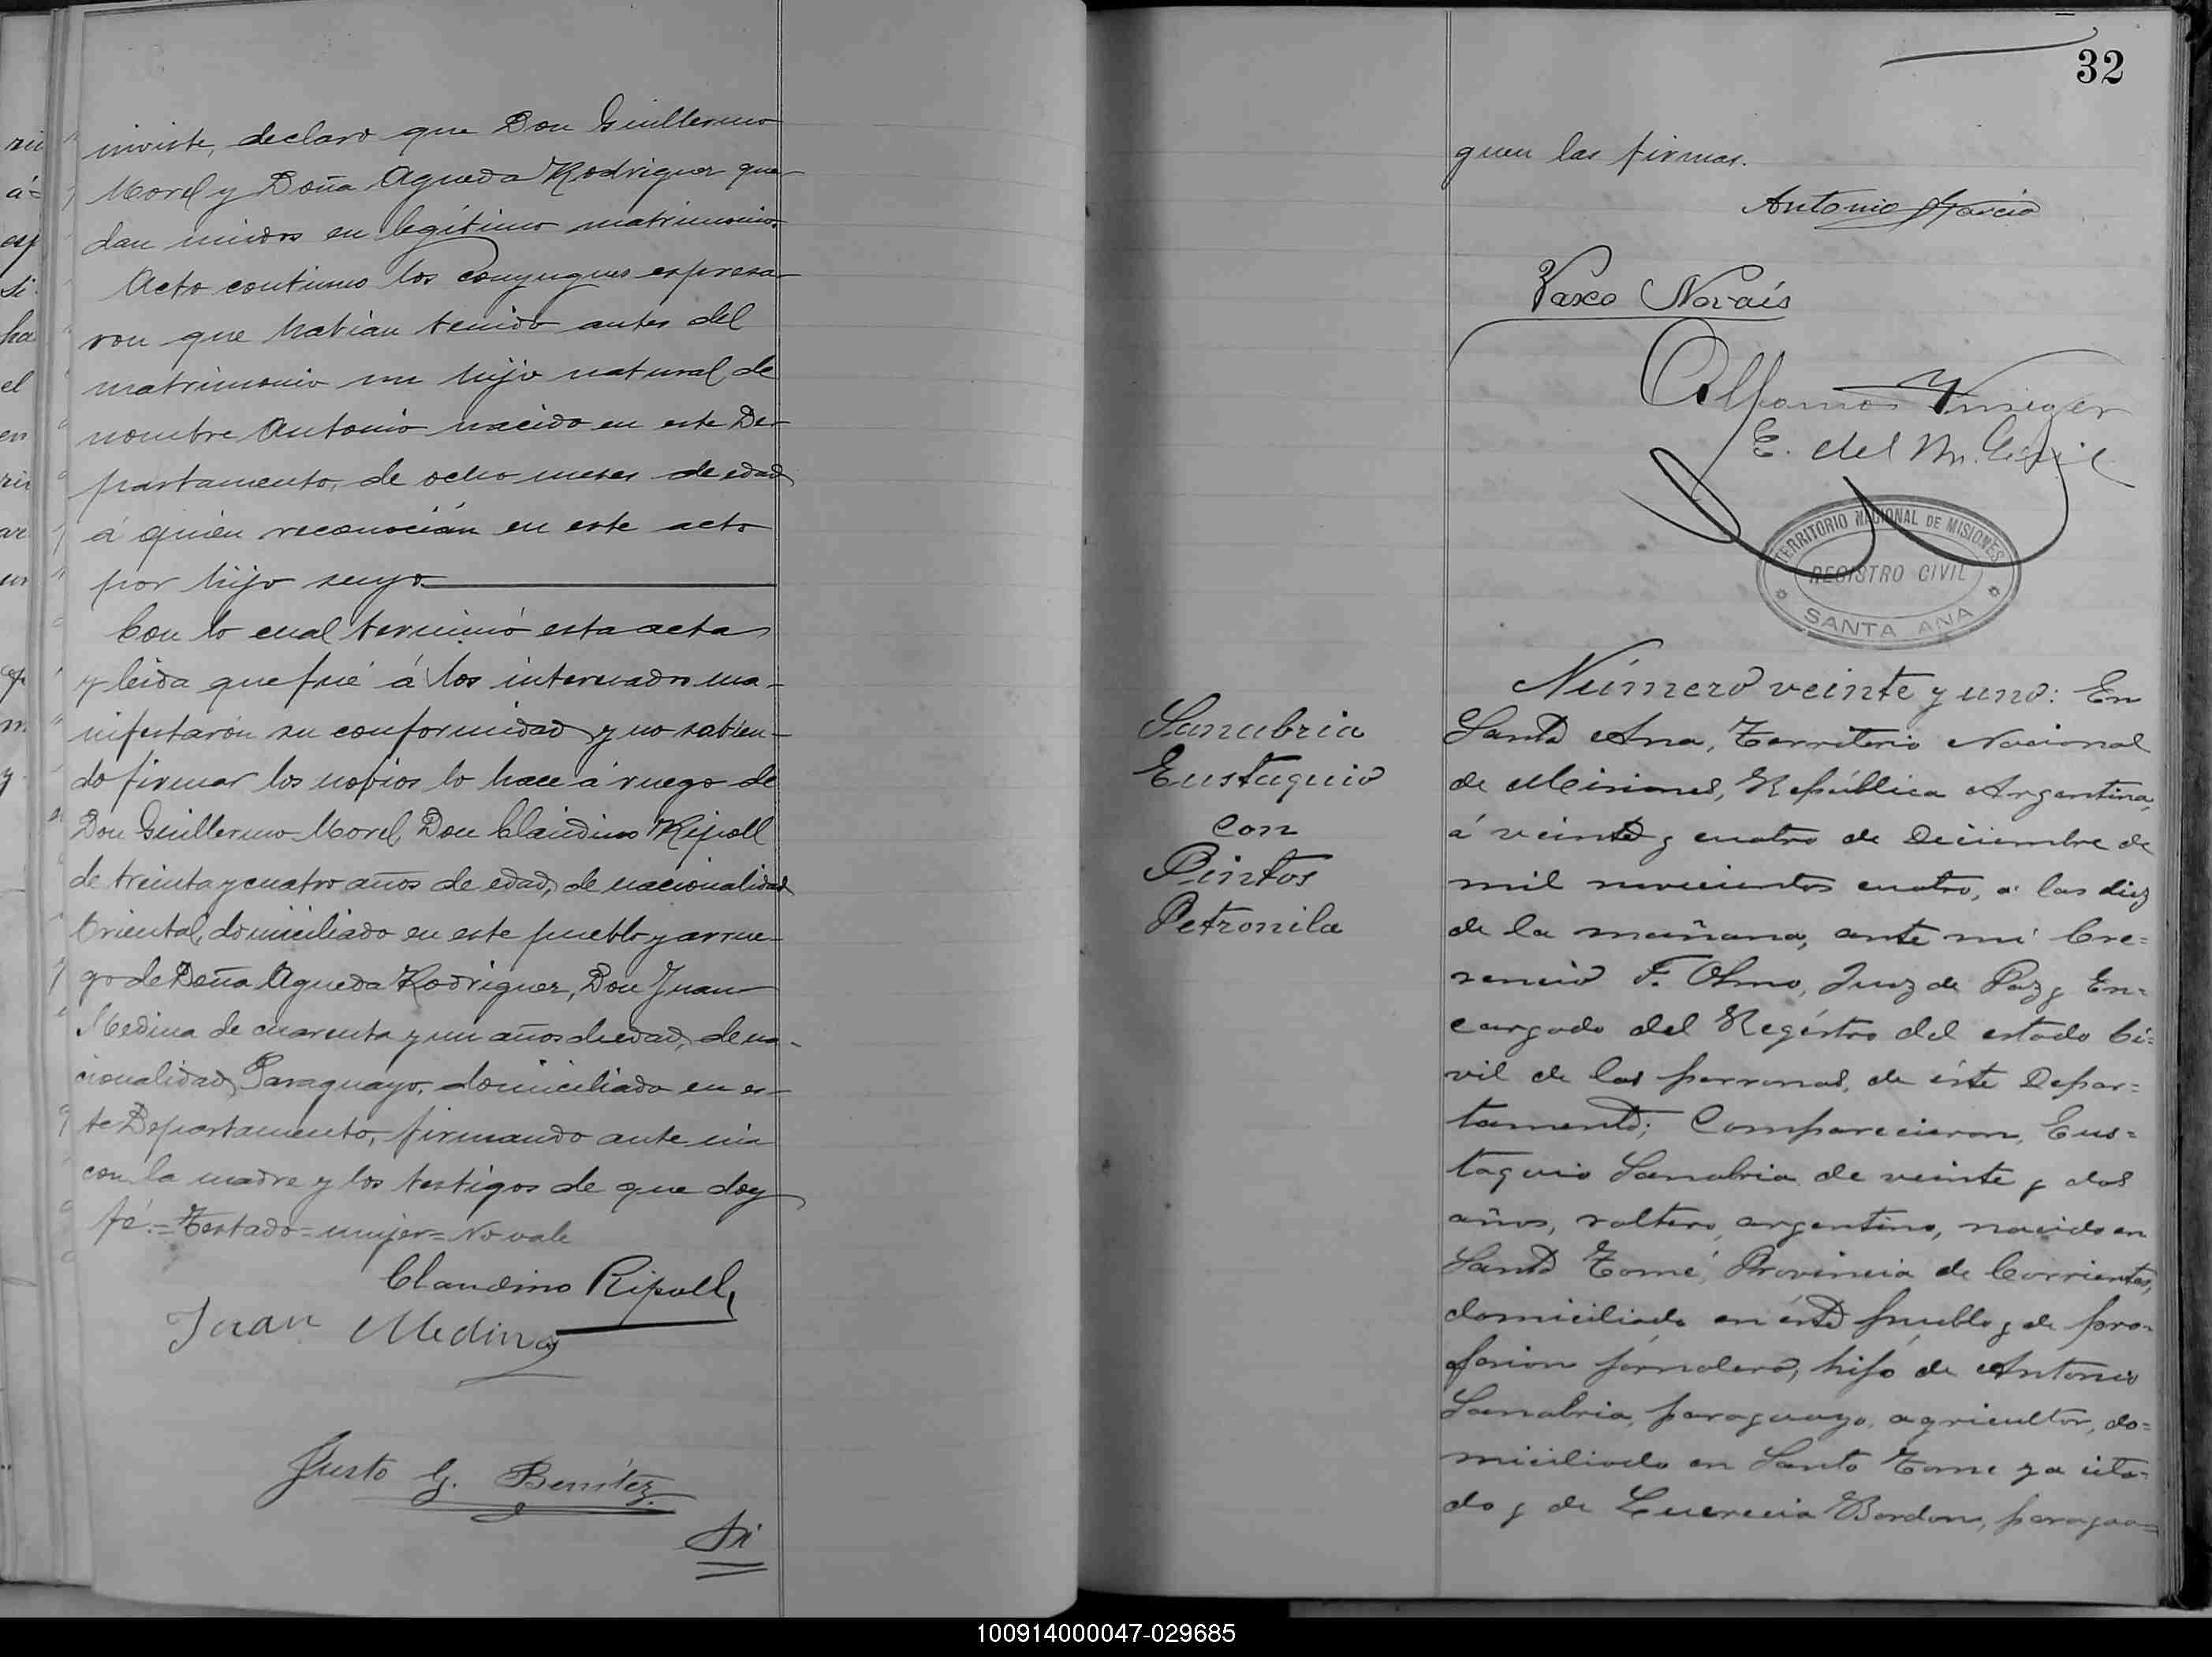 inviste, declaro que Don Guillermo
Morel y Doña Agueda Rodriguez que-
dan unidos en legítimo matrimonio.
Acto continuo los conyugues espresa-
ron que habian tenido antes del
matrimonio un hijo natural de
nombre Antonio nacido en este De-
partamento, de ocho meses de edad
á quien reconocián en este acto
por hijo suyo
Con lo cual terminó esta acta
y leida que fué á los interesados ma-
nifestarón su conformidad y no sabien-
do firmar los novios lo hace á ruego de
Don Guillermo Morel, Don Claudino Ripoll
de treinta y cuatro años de edad, de nacionalidad
Oriental, domiciliado en este pueblo y arrue-
go de Doña Agueda Rodriguez, Don Juan
Medina de cuarenta y un años de edad, de na-
cionalidad Paraguayo, domiciliado en es-
te Departamento, firmando ante mi
con la madre y los testigos de que doy
fé.=Testado=mujer=No vale
Claudino Ripoll
Juan Medina
Justo G. Benítez
Si
32
guen las firmas.
Antonio Garcia
Vasco Novaís
E. del R. Civil
TERRITORIO NACIONAL DE MISIONES
REGISTRO CIVIL
SANTA ANA
Sanabria
Eustaquio
con
Pintos
Petronila
Número veinte y uno: En
Santa Ana, Territorio Nacional
de Misiones, República Argentina,
á veinte y cuatro de Diciembre de
mil novecientos cuatro, a las diez
de la mañana, ante mí Cre=
sencio F. Olmo, Juez de Paz y En=
cargado del Regístro del estado Ci=
vil de las personas, de éste Depar=
tamento; Comparecieron, Eus=
taquio Sanabria de veinte y dos
años, soltero, argentino, nacido en
Santo Tomé, Provincia de Corrientes,
domiciliado en éste pueblo y de pro=
fesion jornalero, hijo de Antonio
Sanabria, paraguayo, agricultor, do=
miciliado en Santo Tome ya cita=
do y de Lucrecia Bordon, paragua=
100914000047-029685